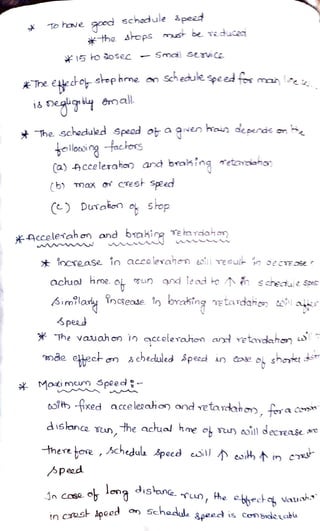 * To have good schedule speed
* the stops must be reduced
* 15 to 20sec - Small service
* The effect of stop time on schedule speed for main line
is negligibly small.
* The scheduled speed of a given train depends on the
following factors
(a) Acceleration and braking retardation
(b) max or crest speed
(c) Duration of stop
* Acceleration and braking retardation
* increase in acceleration will result in decrease
actual time. of run and lead to ↑ in schedule speed
Similarly increase in braking retardation will affect
speed
* The variation in acceleration and retardation will
more effect on scheduled speed in case of shorter dist
* Maximum Speed :-
with fixed acceleration and retardation, for a const
distance run, the actual time of run will decrease and
there fore, schedule speed will ↑ with ↑ in crest
speed
In case of long distance run, the effect of variati
in crest speed on schedule speed is considerable